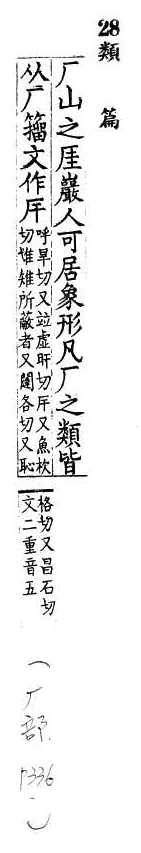 28類篇
厂山之厓巖人可居象形凡厂之類皆
从厂籀文作厈
呼旱切又竝虛旰切厈又魚杴
切惟雉所蔽者又閣各切又恥
格切又昌石切
文二重音五
(厂部
P336
)